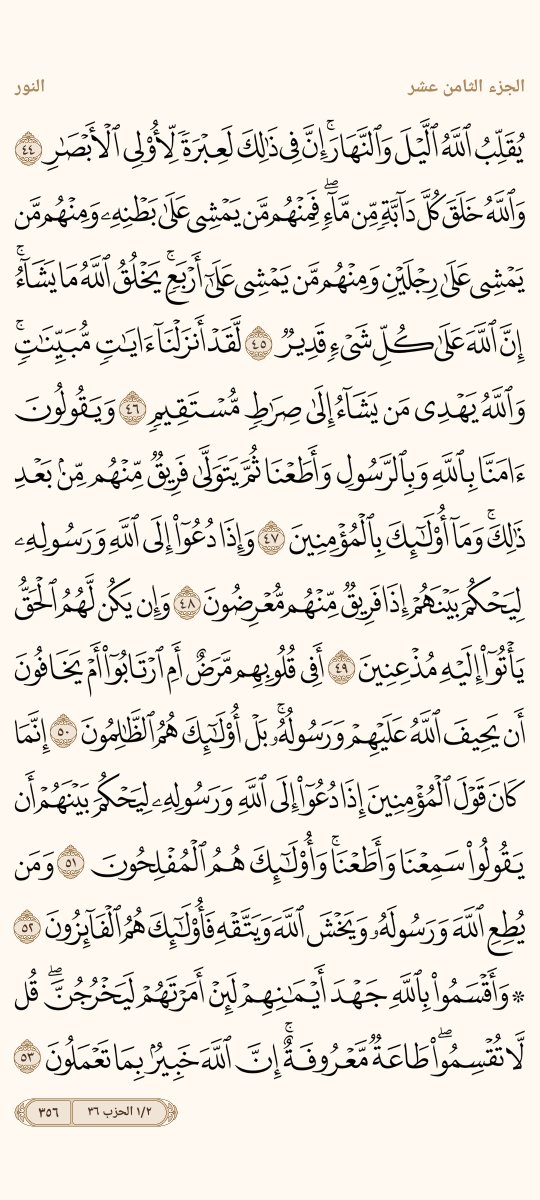 الجزء الثامن عشر
النور
يُقَلِّبُ ٱللَّهُ ٱلَّيۡلَ وَٱلنَّهَارَۚ إِنَّ فِى ذَٰلِكَ لَعِبۡرَةٗ لِّأُوْلِى ٱلۡأَبۡصَٰرِ ٤٤
وَٱللَّهُ خَلَقَ كُلَّ دَآبَّةٖ مِّن مَّآءٖۖ فَمِنۡهُم مَّن يَمۡشِى عَلَىٰ بَطۡنِهِۦ وَمِنۡهُم مَّن
يَمۡشِى عَلَىٰ رِجۡلَيۡنِ وَمِنۡهُم مَّن يَمۡشِى عَلَىٰٓ أَرۡبَعٖۚ يَخۡلُقُ ٱللَّهُ مَا يَشَآءُۚ
إِنَّ ٱللَّهَ عَلَىٰ كُلِّ شَىۡءٖ قَدِيرٞ ٤٥ لَّقَدۡ أَنزَلۡنَآ ءَايَٰتٖ مُّبَيِّنَٰتٖۚ
وَٱللَّهُ يَهۡدِى مَن يَشَآءُ إِلَىٰ صِرَٰطٖ مُّسۡتَقِيمٖ ٤٦ وَيَقُولُونَ
ءَامَنَّا بِٱللَّهِ وَبِٱلرَّسُولِ وَأَطَعۡنَا ثُمَّ يَتَوَلَّىٰ فَرِيقٞ مِّنۡهُم مِّنۢ بَعۡدِ
ذَٰلِكَۚ وَمَآ أُوْلَٰٓئِكَ بِٱلۡمُؤۡمِنِينَ ٤٧ وَإِذَا دُعُوٓاْ إِلَى ٱللَّهِ وَرَسُولِهِۦ
لِيَحۡكُمَ بَيۡنَهُمۡ إِذَا فَرِيقٞ مِّنۡهُم مُّعۡرِضُونَ ٤٨ وَإِن يَكُن لَّهُمُ ٱلۡحَقُّ
يَأۡتُوٓاْ إِلَيۡهِ مُذۡعِنِينَ ٤٩ أَفِى قُلُوبِهِم مَّرَضٌ أَمِ ٱرۡتَابُوٓاْ أَمۡ يَخَافُونَ
أَن يَحِيفَ ٱللَّهُ عَلَيۡهِمۡ وَرَسُولُهُۥۚ بَلۡ أُوْلَٰٓئِكَ هُمُ ٱلظَّٰلِمُونَ ٥٠ إِنَّمَا
كَانَ قَوۡلَ ٱلۡمُؤۡمِنِينَ إِذَا دُعُوٓاْ إِلَى ٱللَّهِ وَرَسُولِهِۦ لِيَحۡكُمَ بَيۡنَهُمۡ أَن
يَقُولُواْ سَمِعۡنَا وَأَطَعۡنَاۚ وَأُوْلَٰٓئِكَ هُمُ ٱلۡمُفۡلِحُونَ ٥١ وَمَن
يُطِعِ ٱللَّهَ وَرَسُولَهُۥ وَيَخۡشَ ٱللَّهَ وَيَتَّقۡهِ فَأُوْلَٰٓئِكَ هُمُ ٱلۡفَآئِزُونَ ٥٢
۞ وَأَقۡسَمُواْ بِٱللَّهِ جَهۡدَ أَيۡمَٰنِهِمۡ لَئِنۡ أَمَرۡتَهُمۡ لَيَخۡرُجُنَّۖ قُل
لَّا تُقۡسِمُواْۖ طَاعَةٞ مَّعۡرُوفَةٌۚ إِنَّ ٱللَّهَ خَبِيرُۢ بِمَا تَعۡمَلُونَ ٥٣
١/٢ الحزب ٣٦
٣٥٦